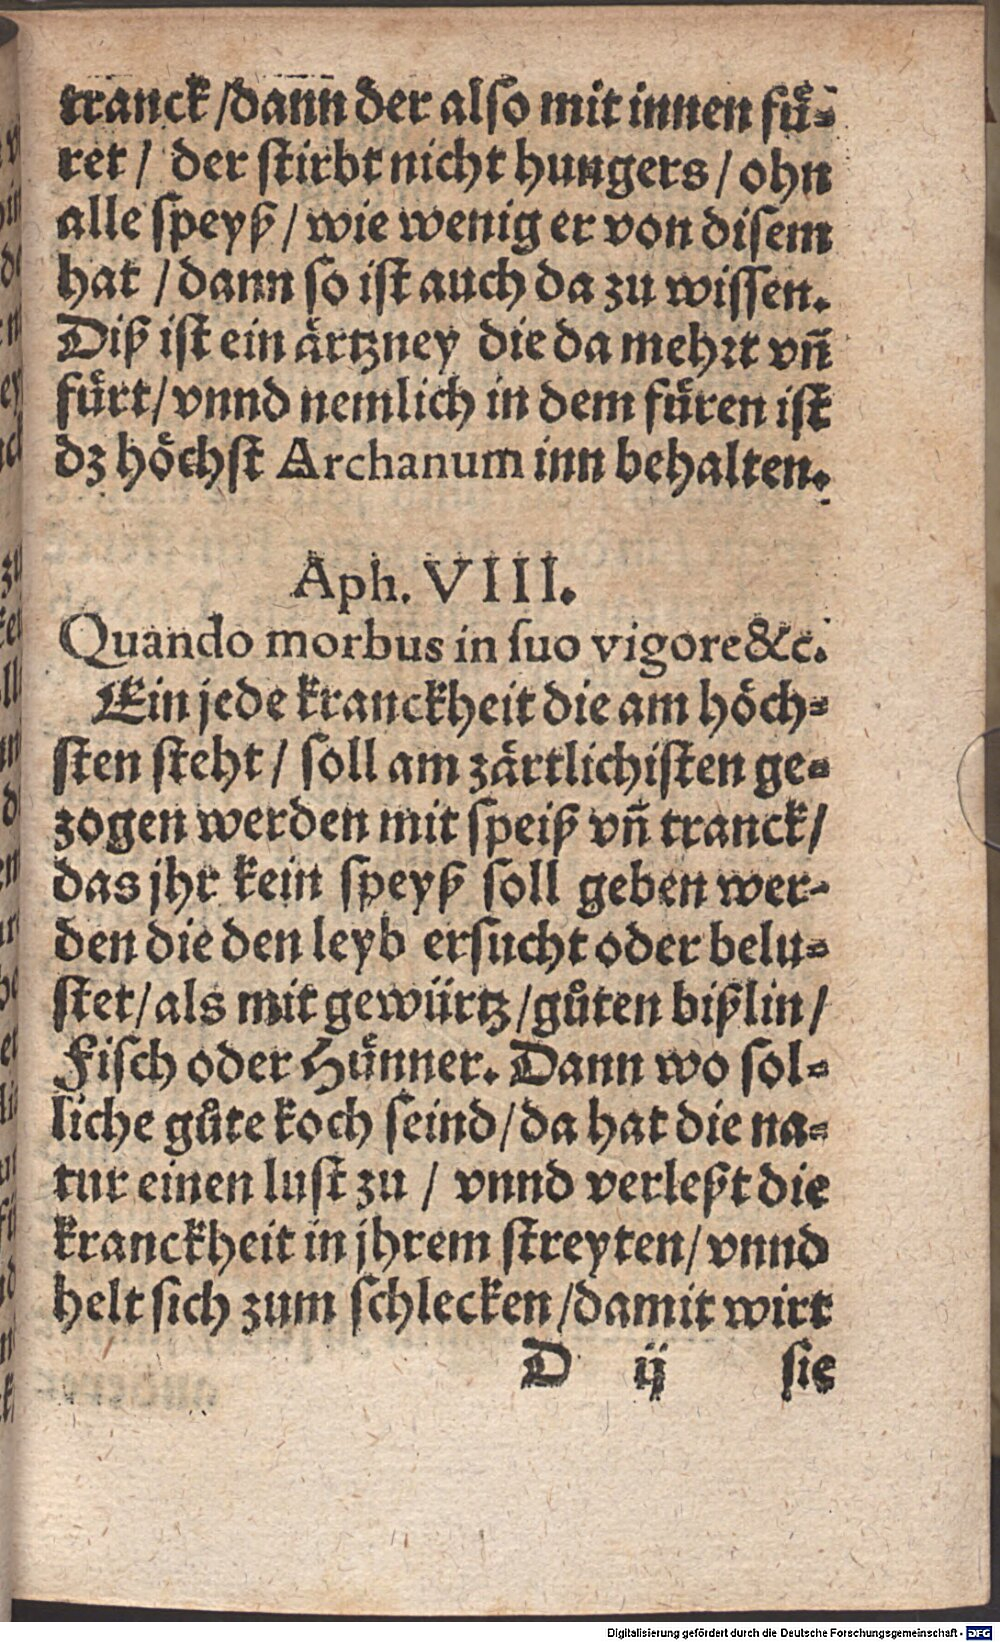 tranck /dann der also mit innen fuͤ⸗
ret / der stirbt nicht hungers / ohn
alle speyß / wie wenig er von disem
hat / dann so ist auch da zu wissen.
Diß ist ein aͤrtzney die da mehrt vn̄
fuͤrt/ vnnd nemlich in dem fuͤren ist
dz hoͤchst Archanum inn behalten.
Aph. VIII.
Quando morbus in suo vigore &c.
Ein jede kranckheit die am hoͤch⸗
sten steht / soll am zaͤrtlichisten ge⸗
zogen werden mit speiß vn̄ tranck/
das jhr kein speyß soll geben wer⸗
den die den leyb ersucht oder belu⸗
stet/ als mit gewürtz /guͦten bißlin /
Fisch oder Huͤnner. Dann wo sol⸗
liche guͦte koch seind/ da hat die na⸗
tur einen lust zu / vnnd verleßt die
kranckheit in jhrem streyten/ vnnd
helt sich zum schlecken /damit wirt
D ij sie
Digitalisierung gefördert durch die Deutsche Forschungsgemeinschaft - DFG